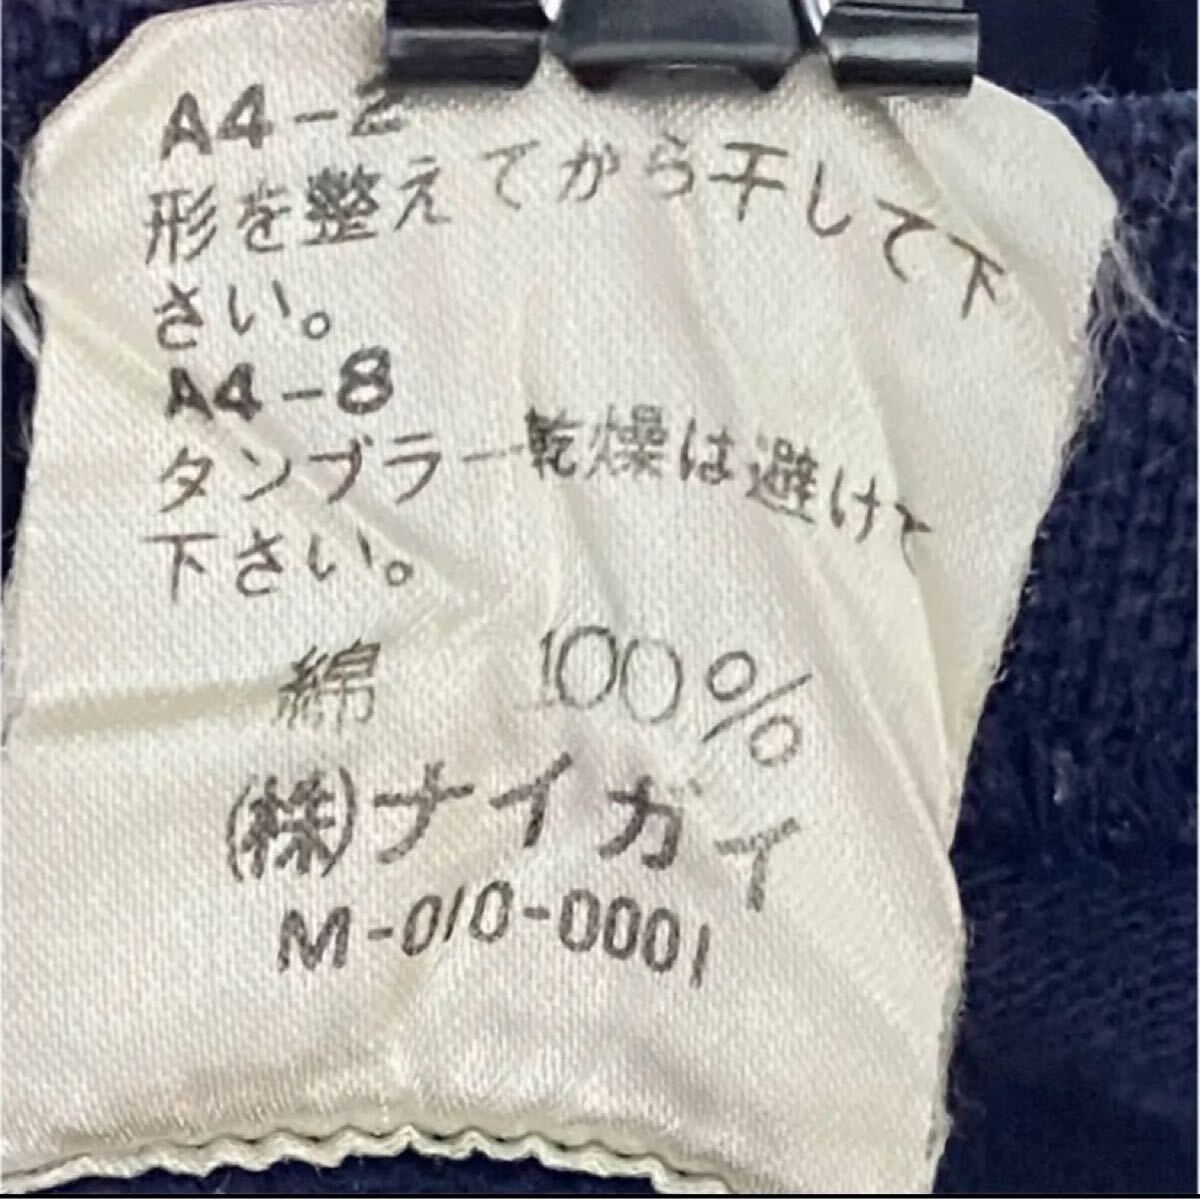 A4-2
形を整えてから干して下
さい。
A4-8
タンブラー乾燥は避けて
下さい。
綿 100%
(株)ナイガイ
M-010-0001